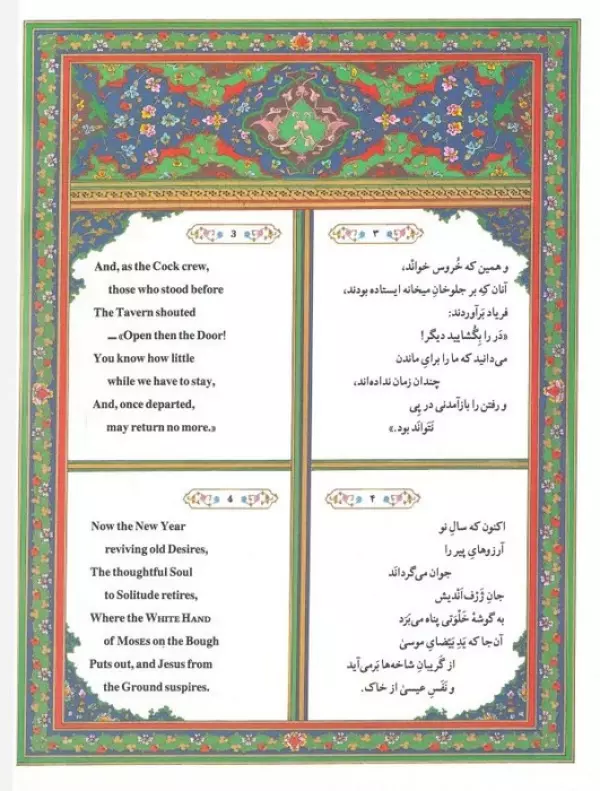 3
And, as the Cock crew,
those who stood before
The Tavern shouted
—«Open then the Door!
You know how little
while we have to stay,
And, once departed,
may return no more.»
۳
و همین که خُروس خوانَد،
آنان کِه بر جلوخانِ میخانه ایستاده بودند،
فریاد بَرآوردند:
«دَر را بِگُشایید دیگر!
می‌دانید که ما را برایِ ماندن
چندان زمان نداده‌اند،
و رفتن را بازآمدنی در پِی
نَتَوانَد بود.»
4
Now the New Year
reviving old Desires,
The thoughtful Soul
to Solitude retires,
Where the WHITE HAND
of MOSES on the Bough
Puts out, and Jesus from
the Ground suspires.
۴
اکنون که سالِ نو
آرزوهایِ پیر را
جوان می‌گردانَد
جانِ ژَرْف‌اَنْدیش
به گوشهٔ خَلْوَتی پناه می‌بَرَد
آن‌جا که یَدِ بَیْضایِ موسیٰ
از گَریبانِ شاخه‌ها بَرمی‌آید
و نَفَسِ عیسیٰ از خاک.